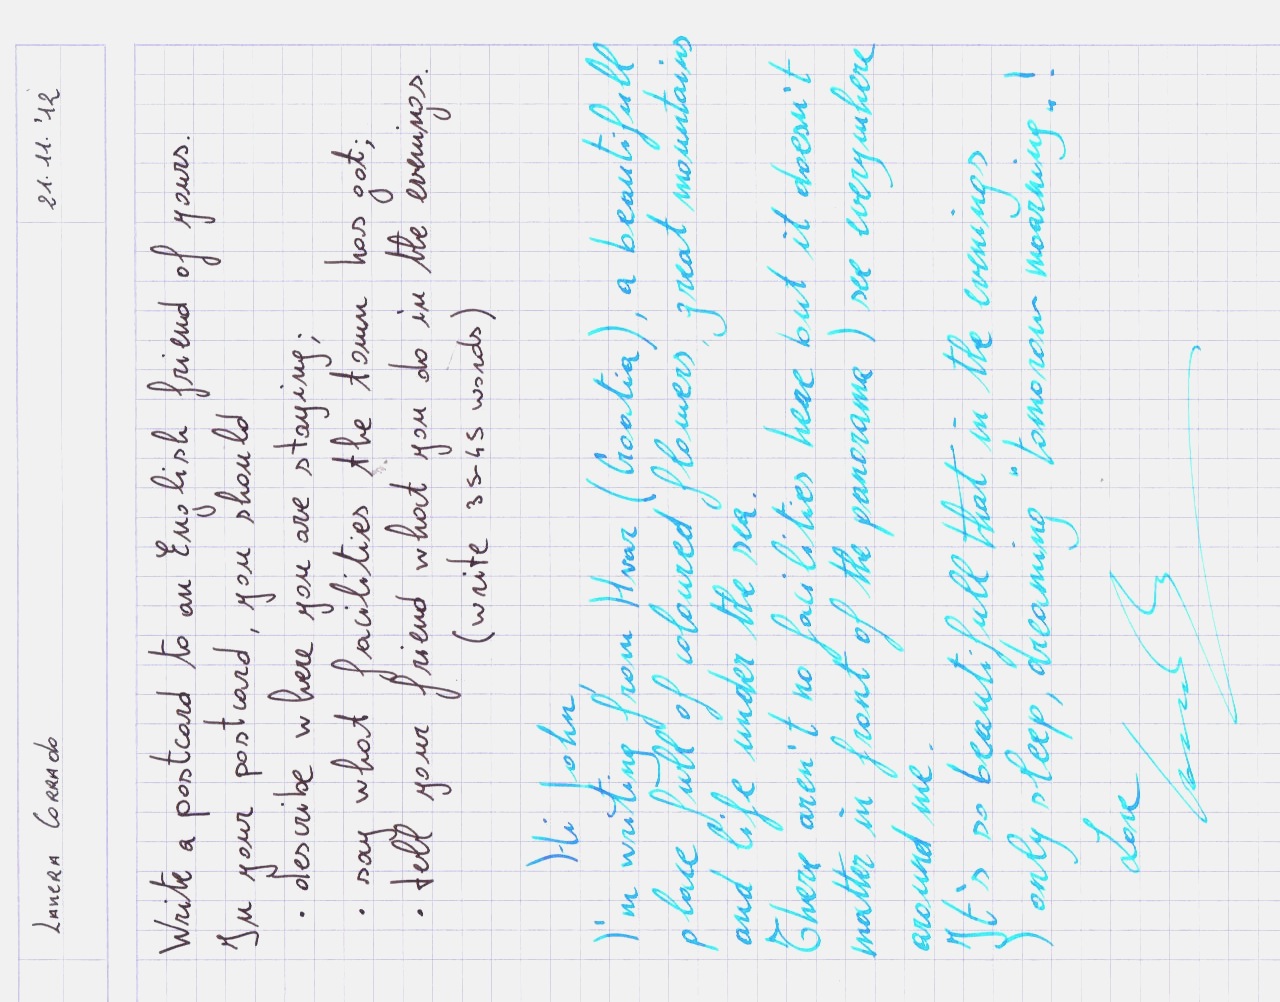 LANERA CORRADO
21.11.'12
Write a postcard to an English friend of yours.
In your postcard, you should
· describe where you are staying;
· say what facilities the town has got;
· tell your friend what you do in the evenings.
(write 35-45 words)
Hi John,
I'm writing from Hvar (Croatia), a beautifull
place full of coloured flowers, great mountains
and life under the sea.
There aren't no facilities hear but it doesn't
matter in front of the panorama I see everywhere
around me.
It's so beautifull that in the evenings
I only sleep, dreaming "tomorrow moarning"!
Love